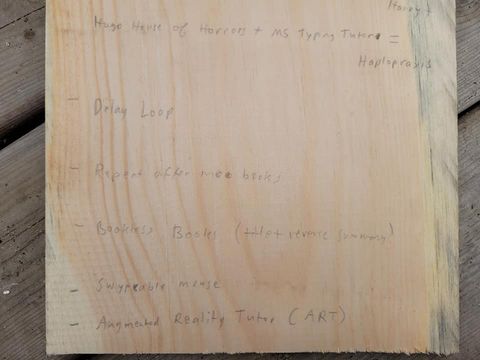 Harry +
Hugo House of Horrors + MS Typing Tutor =
Haplopraxis
- Delay Loop
- Repeat after moo books
- Bookless Books ( reverse summary)
- Swypeable mouse
- Augmented Reality Tutor (ART)